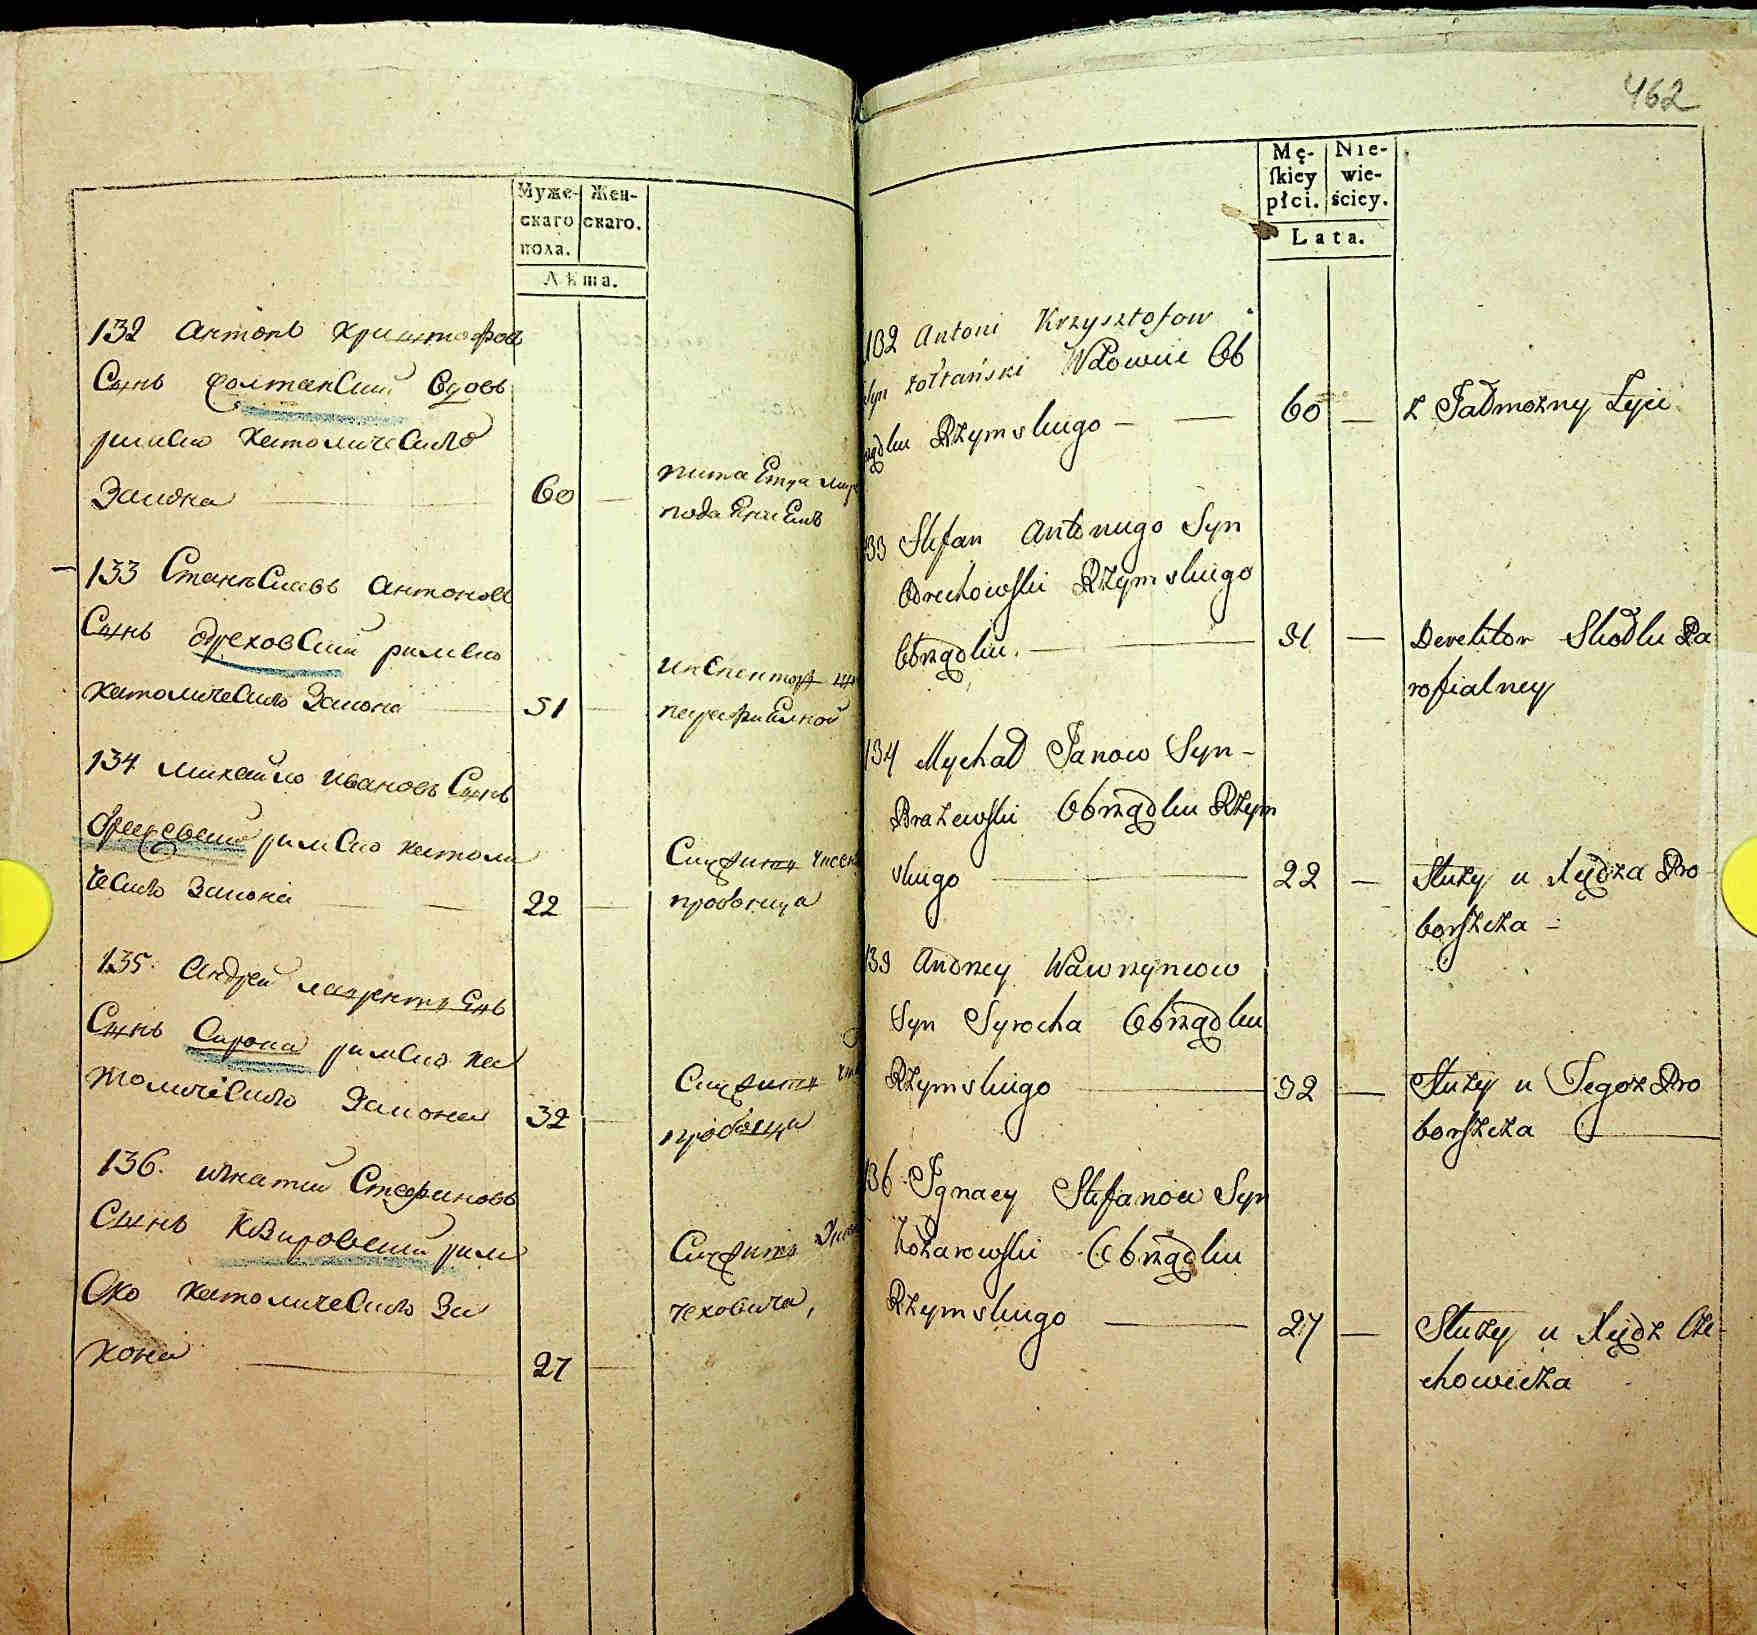 Муже-
скаго
пола.
Жен-
скаго.
Лѣта.
132 Антонъ Криштофов
Сынъ Солтанский Вдовъ
римско католическаго
Закона 60 —
питаетца
подаяниемъ
133 Станиславъ Антоновъ
Сынъ Ореховский римско
католическаго Закона 51 —
инспекторъ
парафиялной
134 Михайло Ивановъ Сынъ
римско катели
ческаго Закона 22 —
Служитъ
пробоща
135. Андрей Лаврентьевъ
Сынъ Сирона римско ка
толическаго Закона 32 —
Служитъ
пробоща
136. Игнатий Стефановъ
Сынъ римъ
ско католическаго За
кона 27 —
Служитъ
чеховича,
462
Mę-
ſkiey
płci.
Nie-
wie-
ściey.
Lata.
132 Antoni Krzysztofow
Syn Żołtański Wdowiec Ob
rządku Rzymskiego — — 60 — z Jałmożny Żyie
133 Stefan Antoniego Syn
Orechowski Rzymskiego
Obrządku. — 51 — Derektor Skołłu Pa
rofialney
134 Mychał Janow Syn —
Brażewski Obrządku Rzym
skiego — 22 — Służy u Xiędza Pro
borszcza —
135 Andrzey Wawrzyncow
Syn Syrocha Obrządku
Rzymskiego — 32 — Służy u Tegoz Pro
borszcza —
136 Ignacy Stefanow Syn
Kożarowski Obrządku
Rzymskiego — 27 — Służy u Xiędz Cze
chowicza